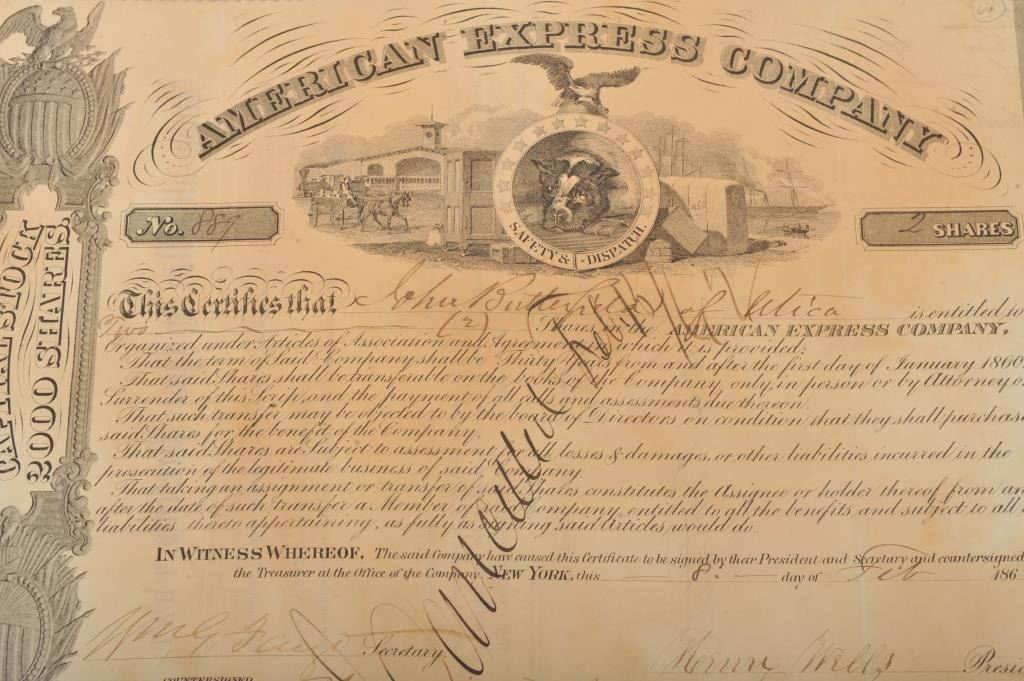 64
AMERICAN EXPRESS COMPANY
SAFETY & DISPATCH.
No. 889
2 SHARES
CAPITAL STOCK
2000 SHARES.
This Certifies that John Butterfield of Utica is entitled to
Two (2) Shares in the AMERICAN EXPRESS COMPANY,
Organized under Articles of Association and Agreement which is provided;
That the term of Said Company shall be Thirty Years from and after the first day of January 1860
That said Shares shall be transferable on the books of the Company only, in person or by Attorney o
Surrender of this Scrip, and the payment of all calls and assessments due thereon.
That such transfer may be objected to by the board of Directors on condition that they shall purchase
said Shares for the benefit of the Company.
That said Shares are Subject to assessment for all losses & damages, or other liabilities incurred in the
prosecution of the legitimate business of said Company.
That taking an assignment or transfer of said Shares constitutes the Assignee or holder thereof, from an
after the date of such transfer a Member of said Company, entitled to all the benefits and subject to all
liabilities thereto appertaining, as fully as signing said Articles, would do.
IN WITNESS WHEREOF, The said Company have caused this Certificate to be signed by their President and Secretary and countersigned
the Treasurer at the Office of the Company, NEW YORK, this 8. day of Feb 186
Cancelled
Wm G Fargo Secretary.
Henry Wells Presid
COUNTERSIGNED